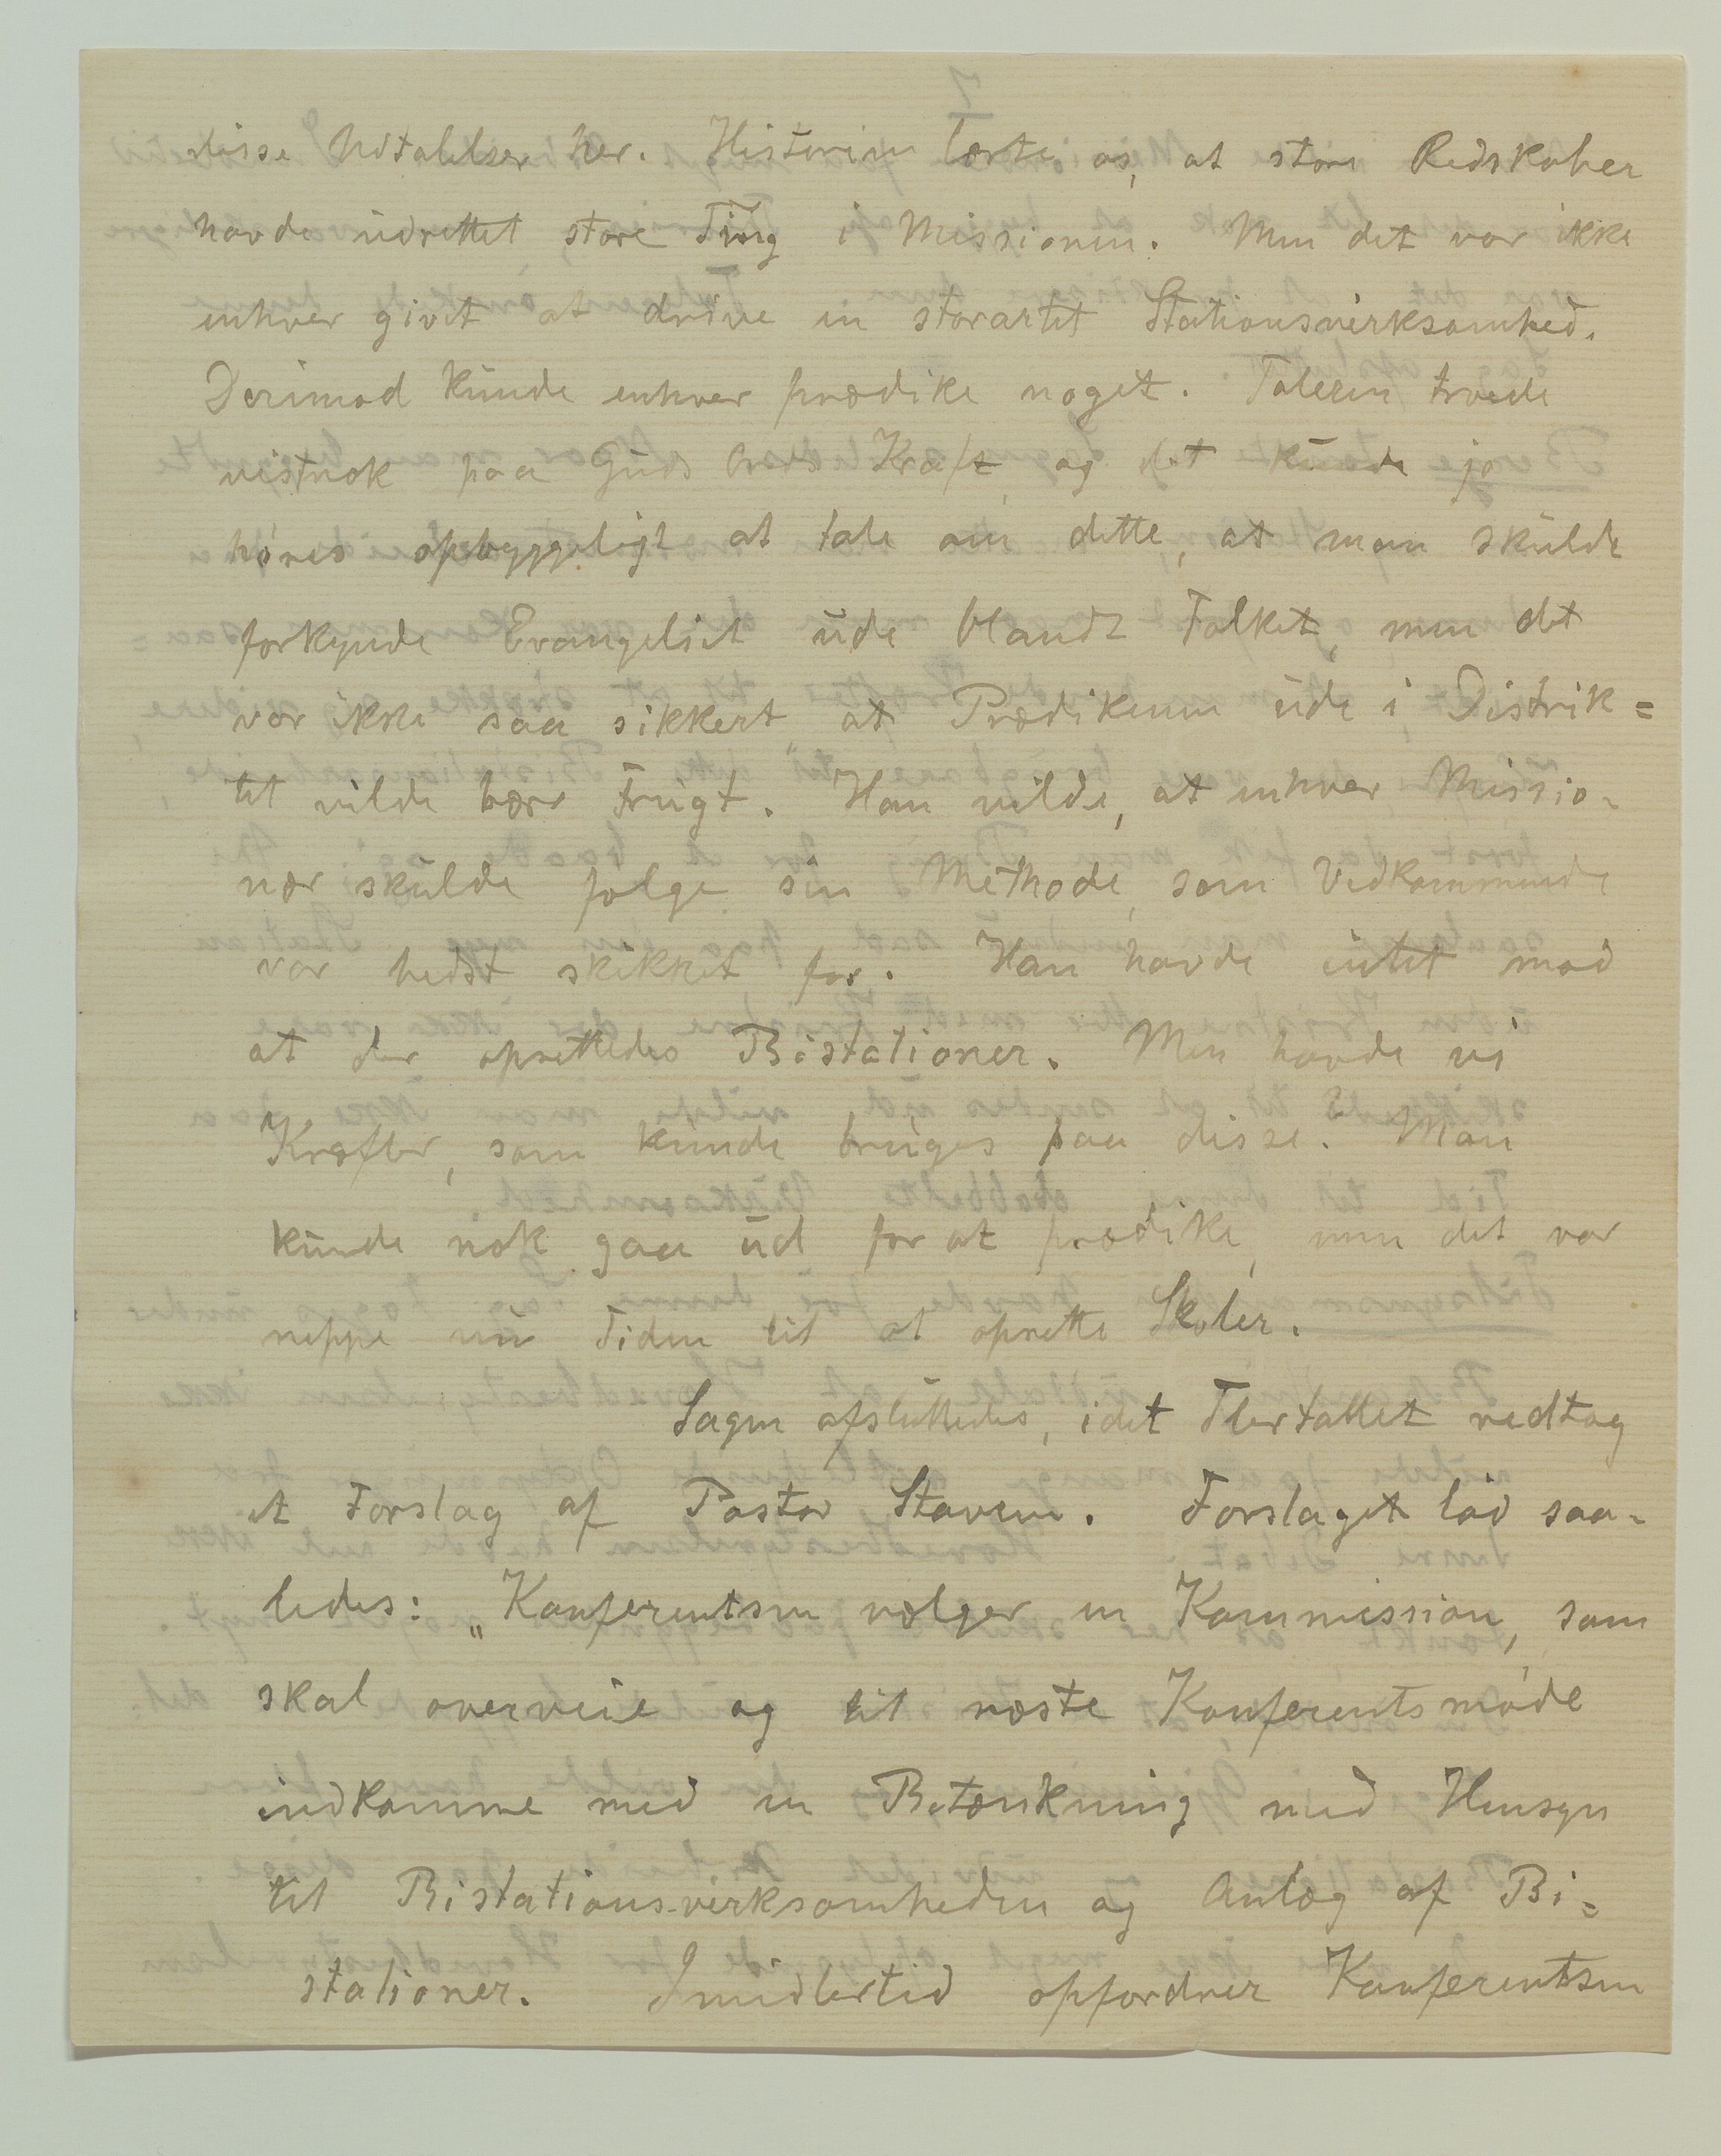 disse Udtalelser her. Historien lærte os, at store Redskaber
havde udrettet store Ting i Missionen. Men det var ikke
enhver givet at drive en storartet Stationsvirksomhed.
Derimod kunde enhver prædike noget. Taleren troede
vistnok paa Guds Ords Kraft, og det kunde jo
høres opbyggeligt at tale om dette, at man skulde
forkynde Evangeliet ude blandt Folket, men det
var ikke saa sikkert at Prædikenen ude i Distrik=
tet vilde bære Frugt. Han vilde, at enhver Missio-
nær skulde følge sin Methode, som Vedkommende
var bedst skikket for. Han havde intet mod
at der oprettedes Bistationer. Men havde vi
Kræfter, som kunde bruges paa disse? Man
kunde nok gaa ud for at prædike, men det var
neppe nu Tiden til at oprette Skoler.
Sagen afsluttedes, idet Flertallet vedtog
et Forslag af Pastor Stavem. Forslaget lød saa-
ledes: „Konferentsen vælger en Kommission, som
skal overveie og til næste Konferentsmøde
indkomme med en Betænkning med Hensyn
til Bistations-virksomheden og Anlæg af Bi=
stationer. Imidlertid opfordrer Konferentsen